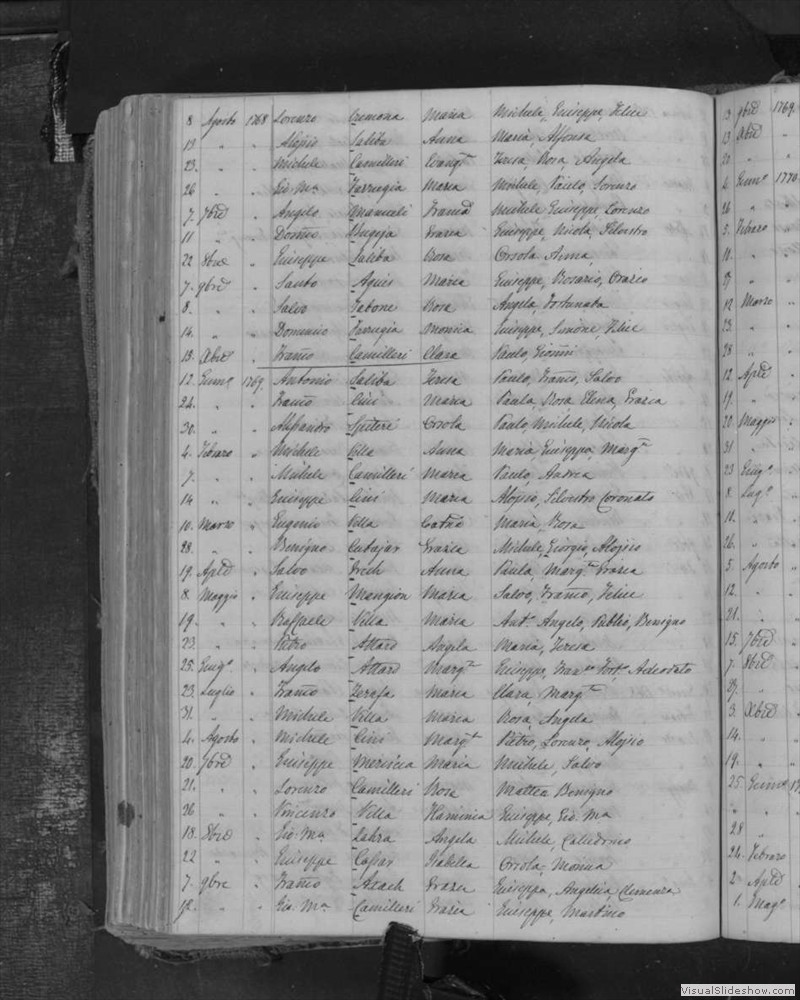 8 Agosto 1768 Lorenzo Cremona Maria Michele, Giuseppe, Felice
13 " " Aloisio Saliba Anna Maria, Alfonsa
23. " " Michele Camilleri Evangta Teresa, Rosa, Angela
26 " " Gio: Ma Farrugia Maria Michele, Paulo, Lorenzo
7. 7bre " Angelo Francа Michele, Giuseppe, Lorenzo
11 " " Bugeja Grazia Giuseppe, Nicola, Silvestro
22 8bre " Giuseppe Saliba Rosa Orsola, Anna,
7. 9bre " Santo Agius Maria Giuseppe, Rosario, Orazio
8. " " Salvo Tabone Rosa Angela, Fortunata
14. " " Domenico Farrugia Monica Giuseppe, Simone, Felice
13. Xbre " Franco Camilleri Clara Paulo, Gionni
12. Genno 1769. Antonio Saliba Teresa Paulo, Franco, Salvo
24. " " Franco Cini Maria Paula, Rosa, Elena, Grazia
30. " " Alessandro Spiteri Orsola Paulo, Michele, Nicola
4. Febraro " Michele Villa Anna Maria, Giuseppa, Margta
7. " " Michele Camilleri Maria Paulo, Andrea
14 " " Giuseppe Cini Maria Aloisio, Silvestro Coronato
10. Marzo " Eugenio Villa Catna Maria, Rosa
28. " " Benigno Cutajar Grazia Michele, Giorgio, Aloisio
19. Aple " Salvo Grech Anna Paula, Margta Grazia
8. Maggio " Giuseppe Mangion Maria Salvo, Franco, Felice
19. " " Raffaele Villa Maria Anto Angelo, Publio, Benigno
23. " " Pietro Attard Angela Maria, Teresa
25. Giugo " Angelo Attard Margta Giuseppe, Adeodato
23. Luglio " Franco Zerafa Maria Clara, Margta
31. " " Michele Villa Maria Rosa, Angela
4. Agosto " Michele Cini Margta Pietro, Lorenzo, Aloisio
20. 7bre " Giuseppe Mercieca Maria Michele, Salvo
21. " " Lorenzo Camilleri Rosa Mattea Benigno
26 " " Vincenzo Villa Flaminia Giuseppe, Gio: Ma
18. 8bre " Gio: Ma Zahra Angela Michele, Calcedonio
22 " " Giuseppe Cassar Isabella Orsola, Monica
7. 9bre " Franco Azach Grazia Giuseppa, Angelica, Clemenza
12. " " Gio. Ma Camilleri Grazia Giuseppe, Martino
13 9bre 1769.
13 Xbre "
20 " "
4. Genno 1770
26 "
5. Febraro
11. "
27 "
12 Marzo
23. "
28 "
12 Aple
19. "
20 Maggio
31 "
23 Giugo
8. Lugo
18. "
26. "
5. Agosto
12. "
21. "
15. 7bre
7. 8bre
27. "
3. Xbre
14. "
19. "
25. Genno
" "
28 "
24. Febraro
2 Aple
1. Magg
VisualSlideshow.com